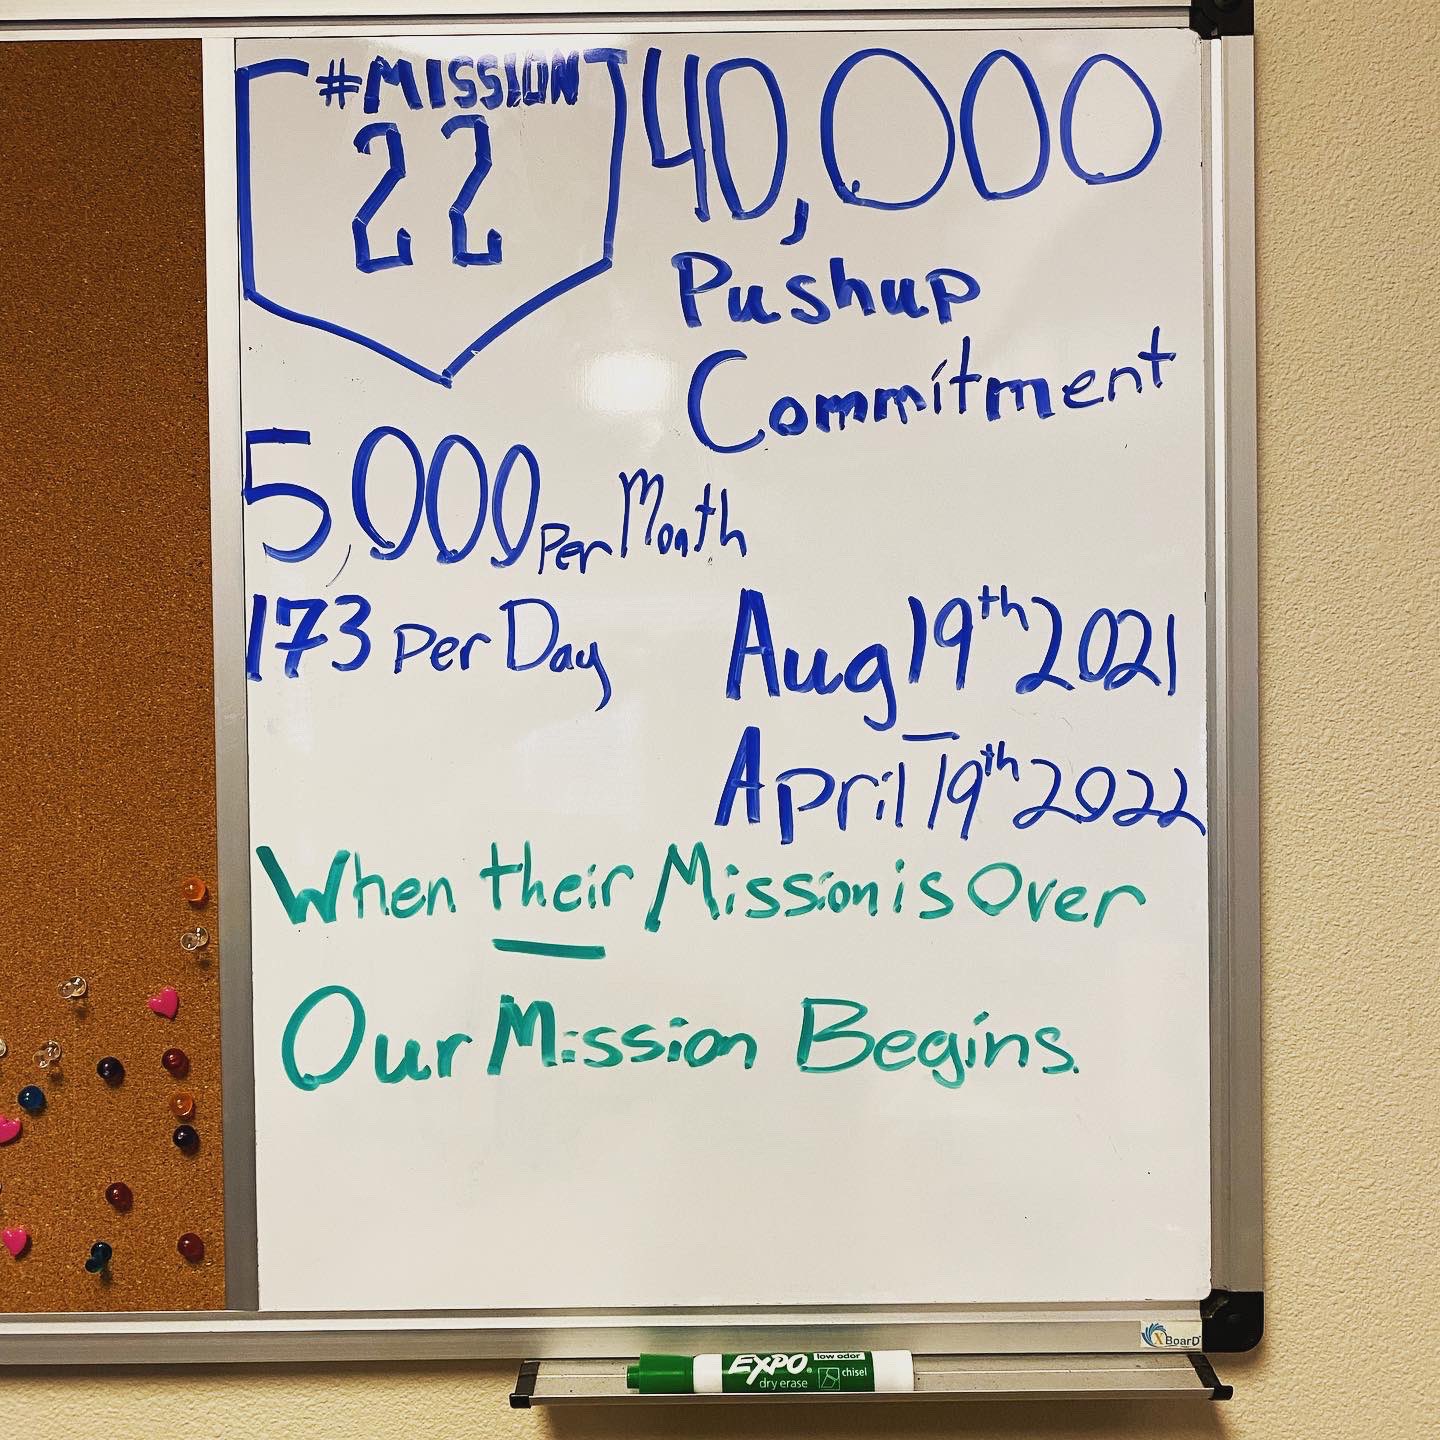 #MISSION
22
40,000
Pushup
Commitment
5,000 Per Month
173 Per Day
Aug 19th 2021
–
April 19th 2022
When their Mission is Over
Our Mission Begins.
XBoarD
EXPO low odor
dry erase chisel